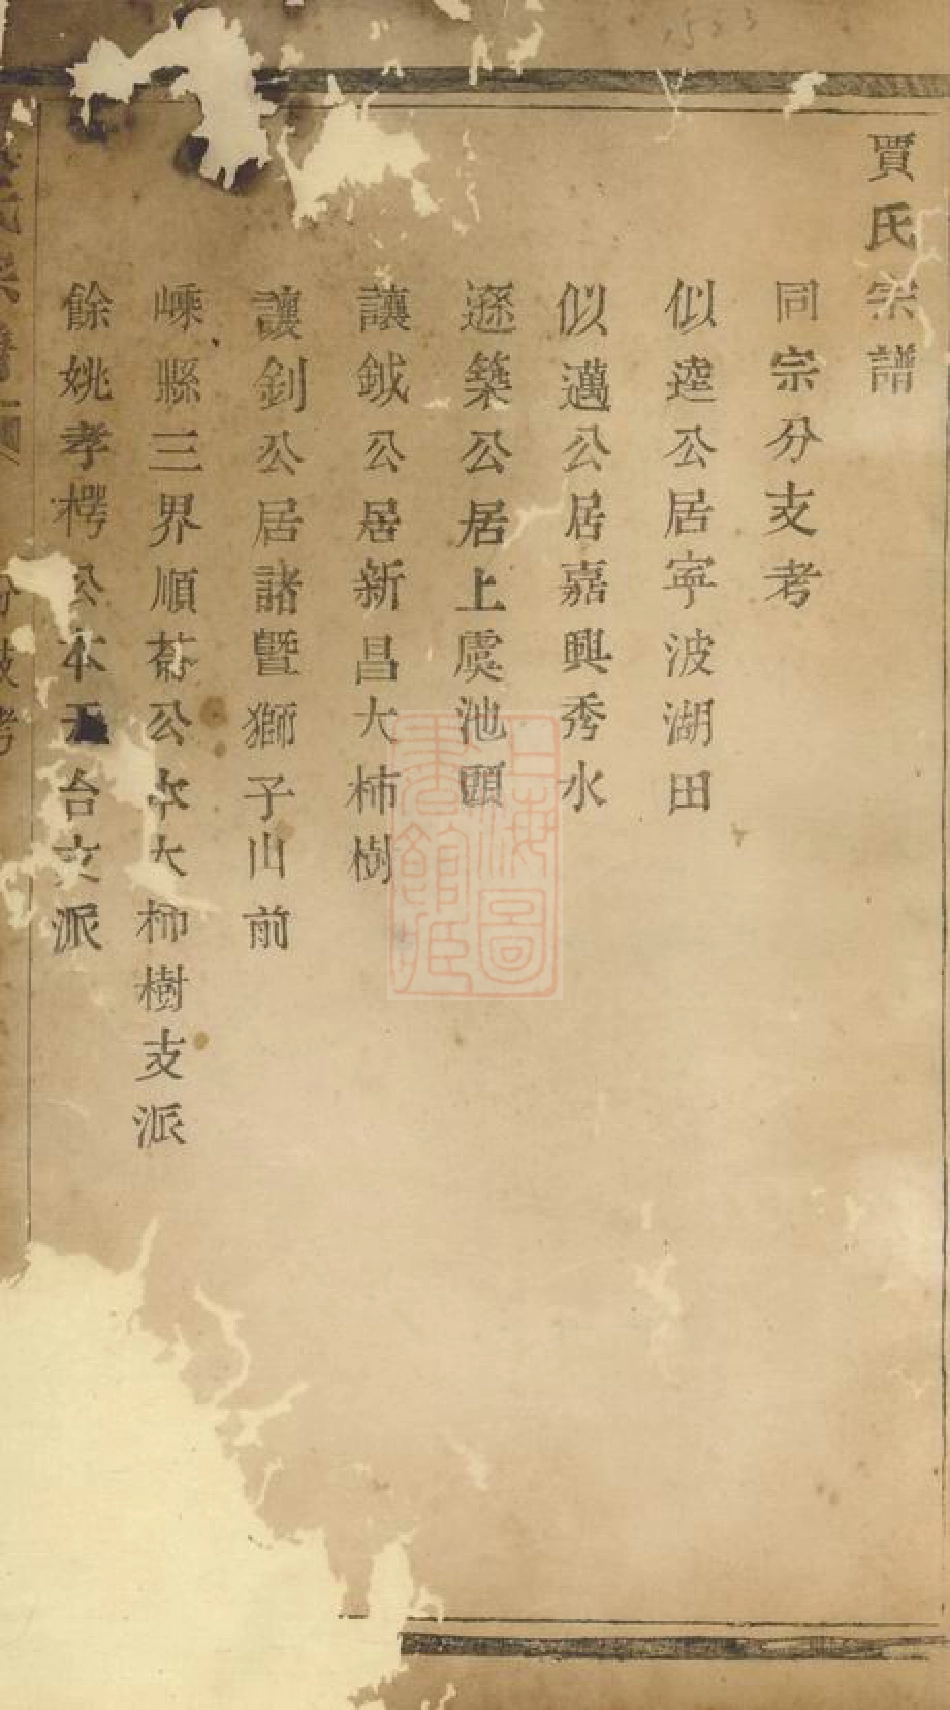 賈氏宗譜
同宗分支考
似逵公居寧波湖田
似邁公居嘉興秀水
遜築公居上虞池頭
讓鉞公居新昌大柿樹
讓釗公居諸暨獅子山前
嵊縣三界順公本大柿樹支派
餘姚孝樗公本天台文派
上海圖書館藏